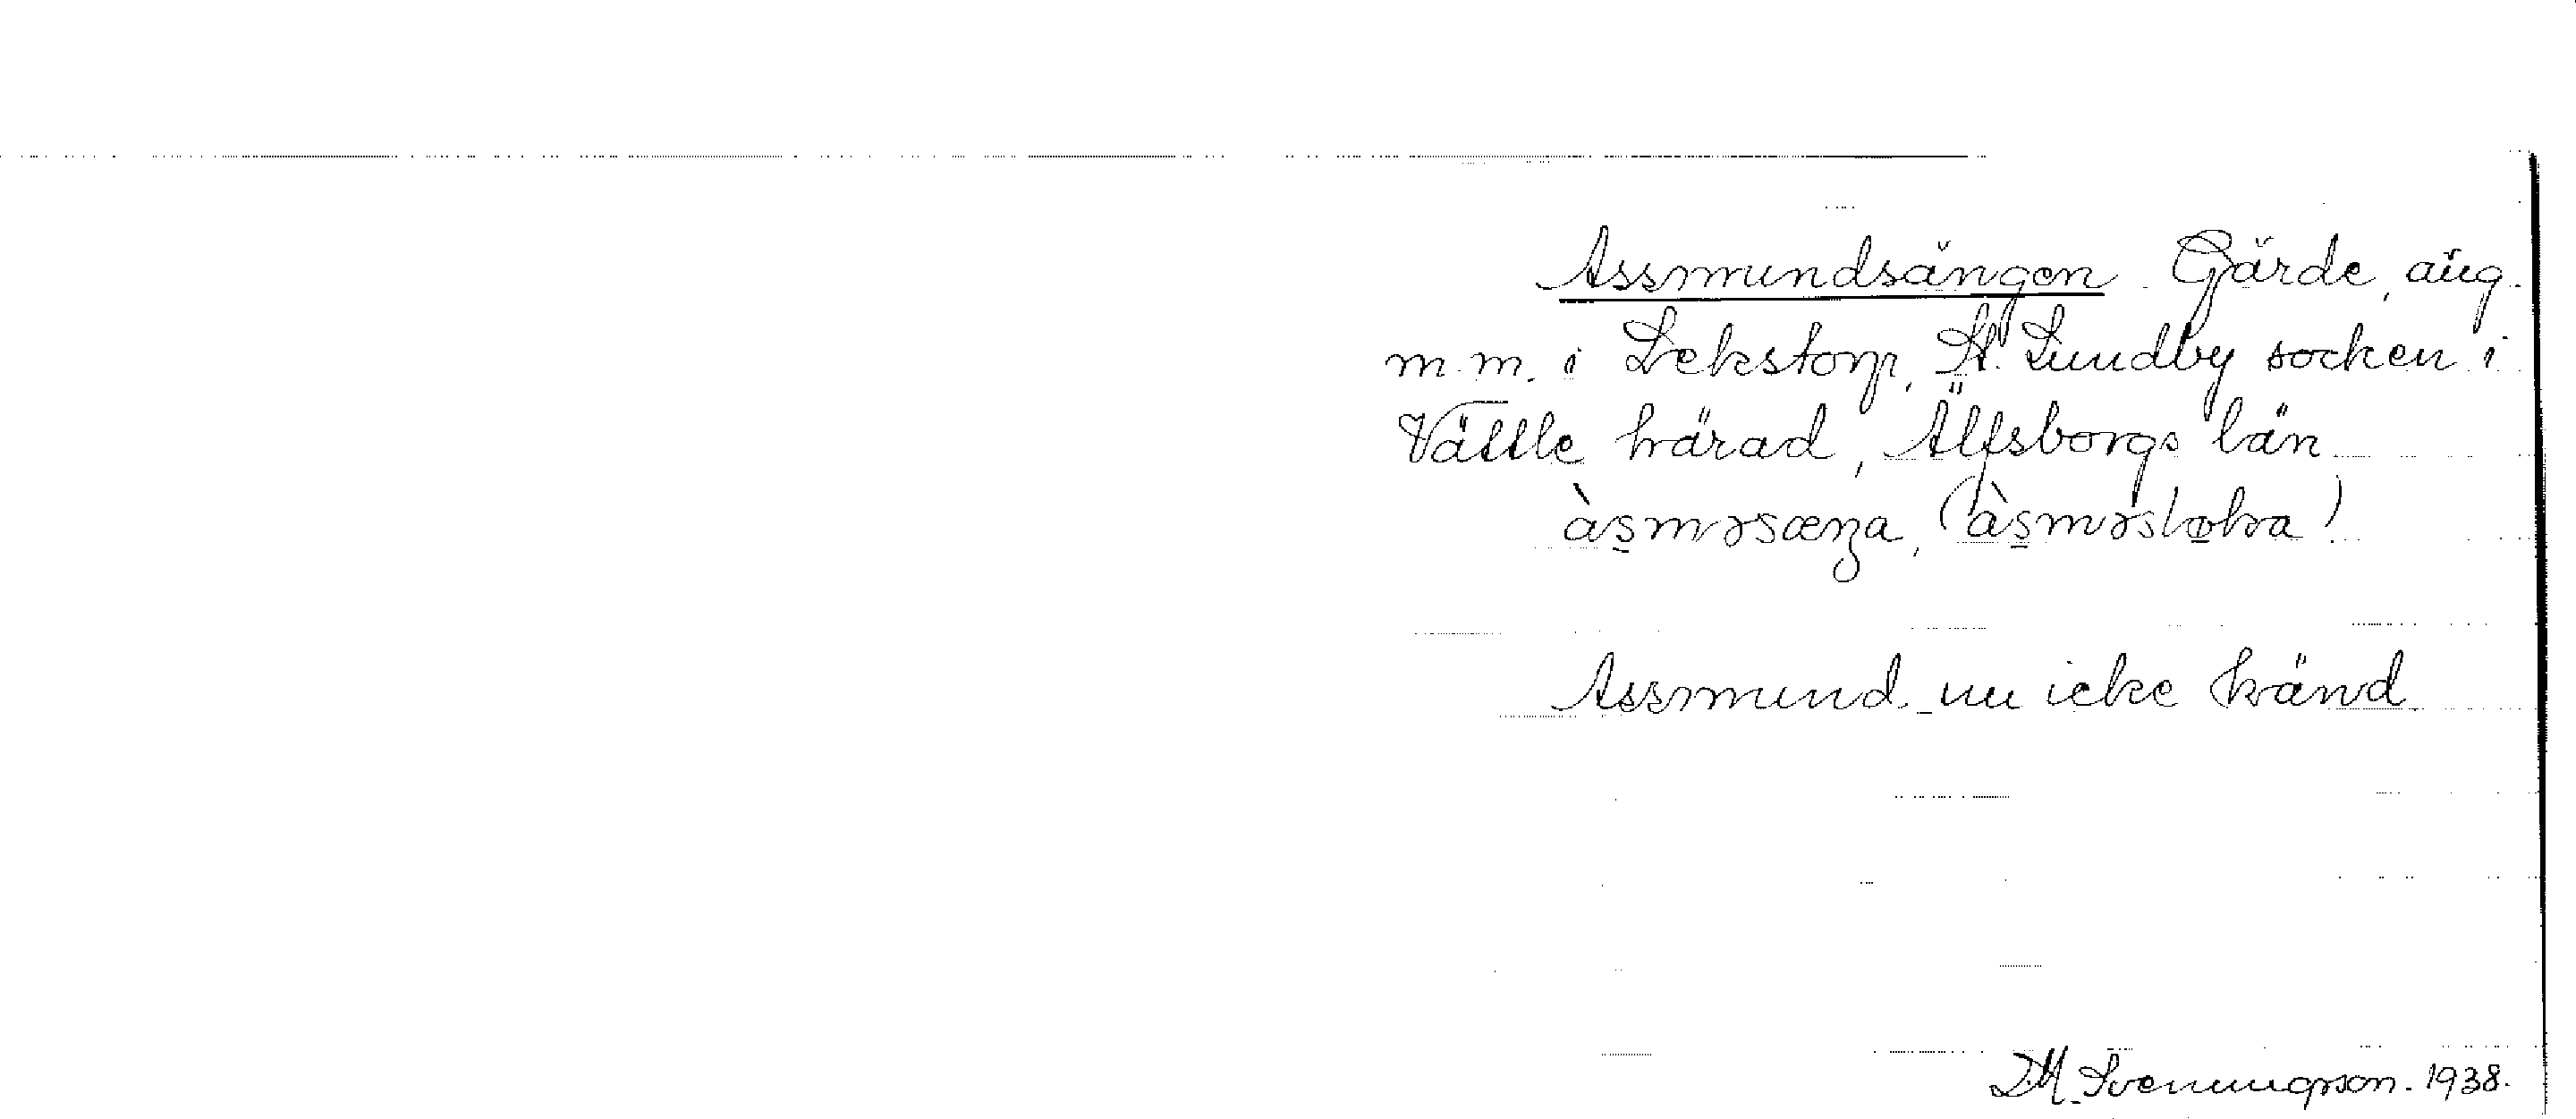 Assmundsängen. Gärde, äng.
m. m. i Lekstorp, St. Lundby socken i
Vättle härad, Älfsborgs län
àsməsæŋa, (àsməsløka)
Assmund nu icke känd.
DM. Svenungsson. 1938.